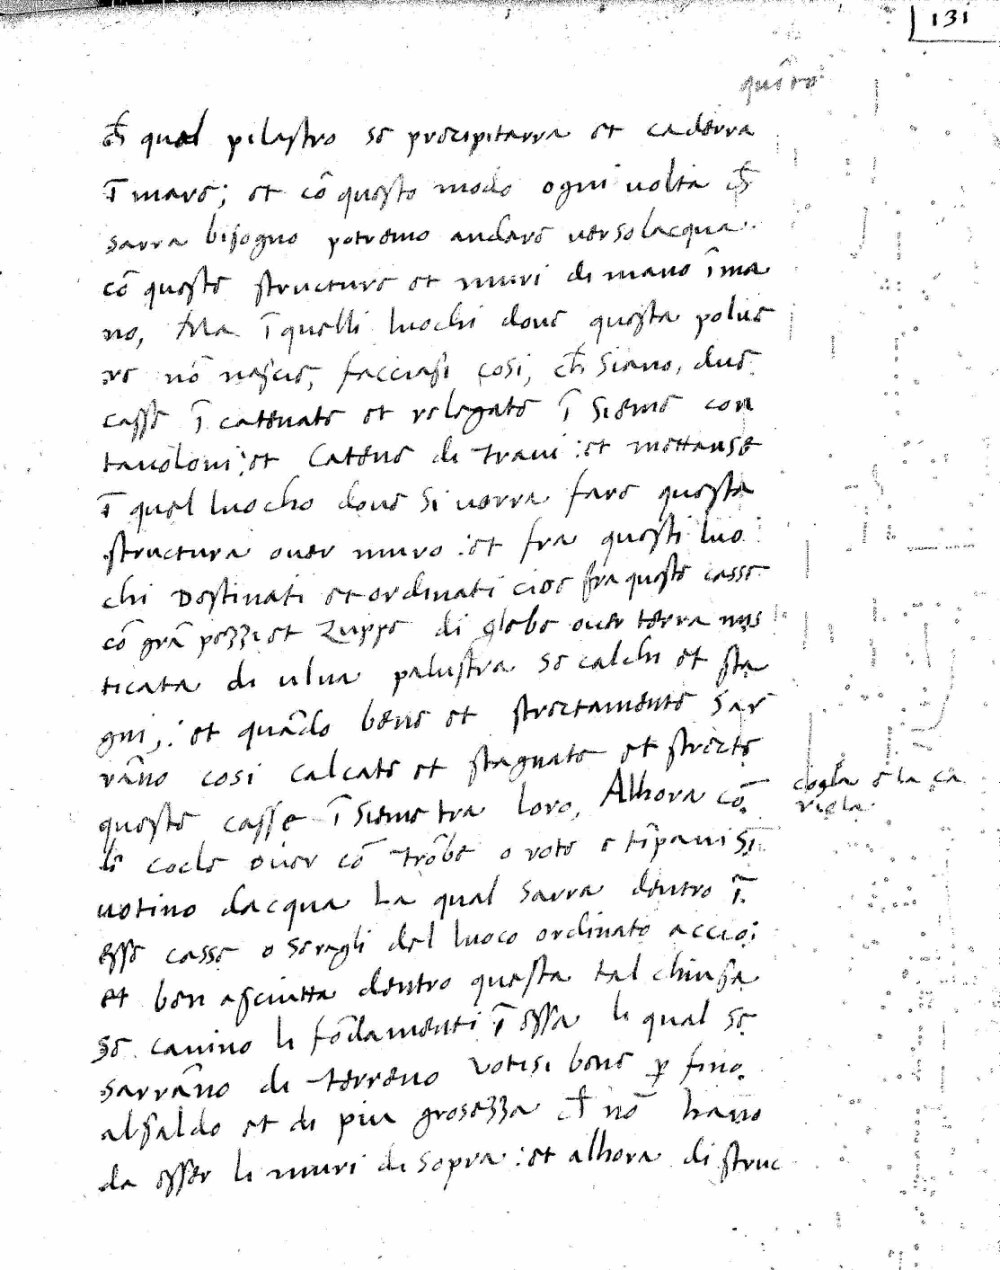 131
quīto
ch̄ qual pilastro se precipitarra et caderra
ī mare; et cō questo modo ogni volta ch̄
sarra bisogno potremo andare verso lacqua
cō queste structure et muri di mano ī ma
no, Ma ī quelli luochi dove questa polue
re nō nasce, facciasi cosi, ch̄ siano, due
casse ī catenate et relegate ī sieme con
tauoloni: et catene di traui: et mettanse
ī quel luocho doue si uorra fare questa
structura ouer muro: et fra questi luo
chi Destinati et ordinati cioe fra queste casse
cō grā pezzi et zuppe di glebe ouer terra mas
ticata di ulua palustra se calchi et sta
gni,: et quādo bene et strectamente sar
rāno cosi calcate et stagnate et strecte
queste casse ī sieme tra loro, Alhora cō
le cocle ouer cō trōbe o rote e tīpani si
uotino dacqua La qual sarra dentro ī
esse casse o seragli del luoco ordinato accio:
et ben asciutta dentro questa tal chiusa
se cauino li fōdamenti ī essa li qual se
sarrāno di terreno votisi bene ꝑ fino
al saldo et di piu grosezza ch̄ nō hano
da esser li muri di sopra: et alhora di struc
cogla e la ca
riola